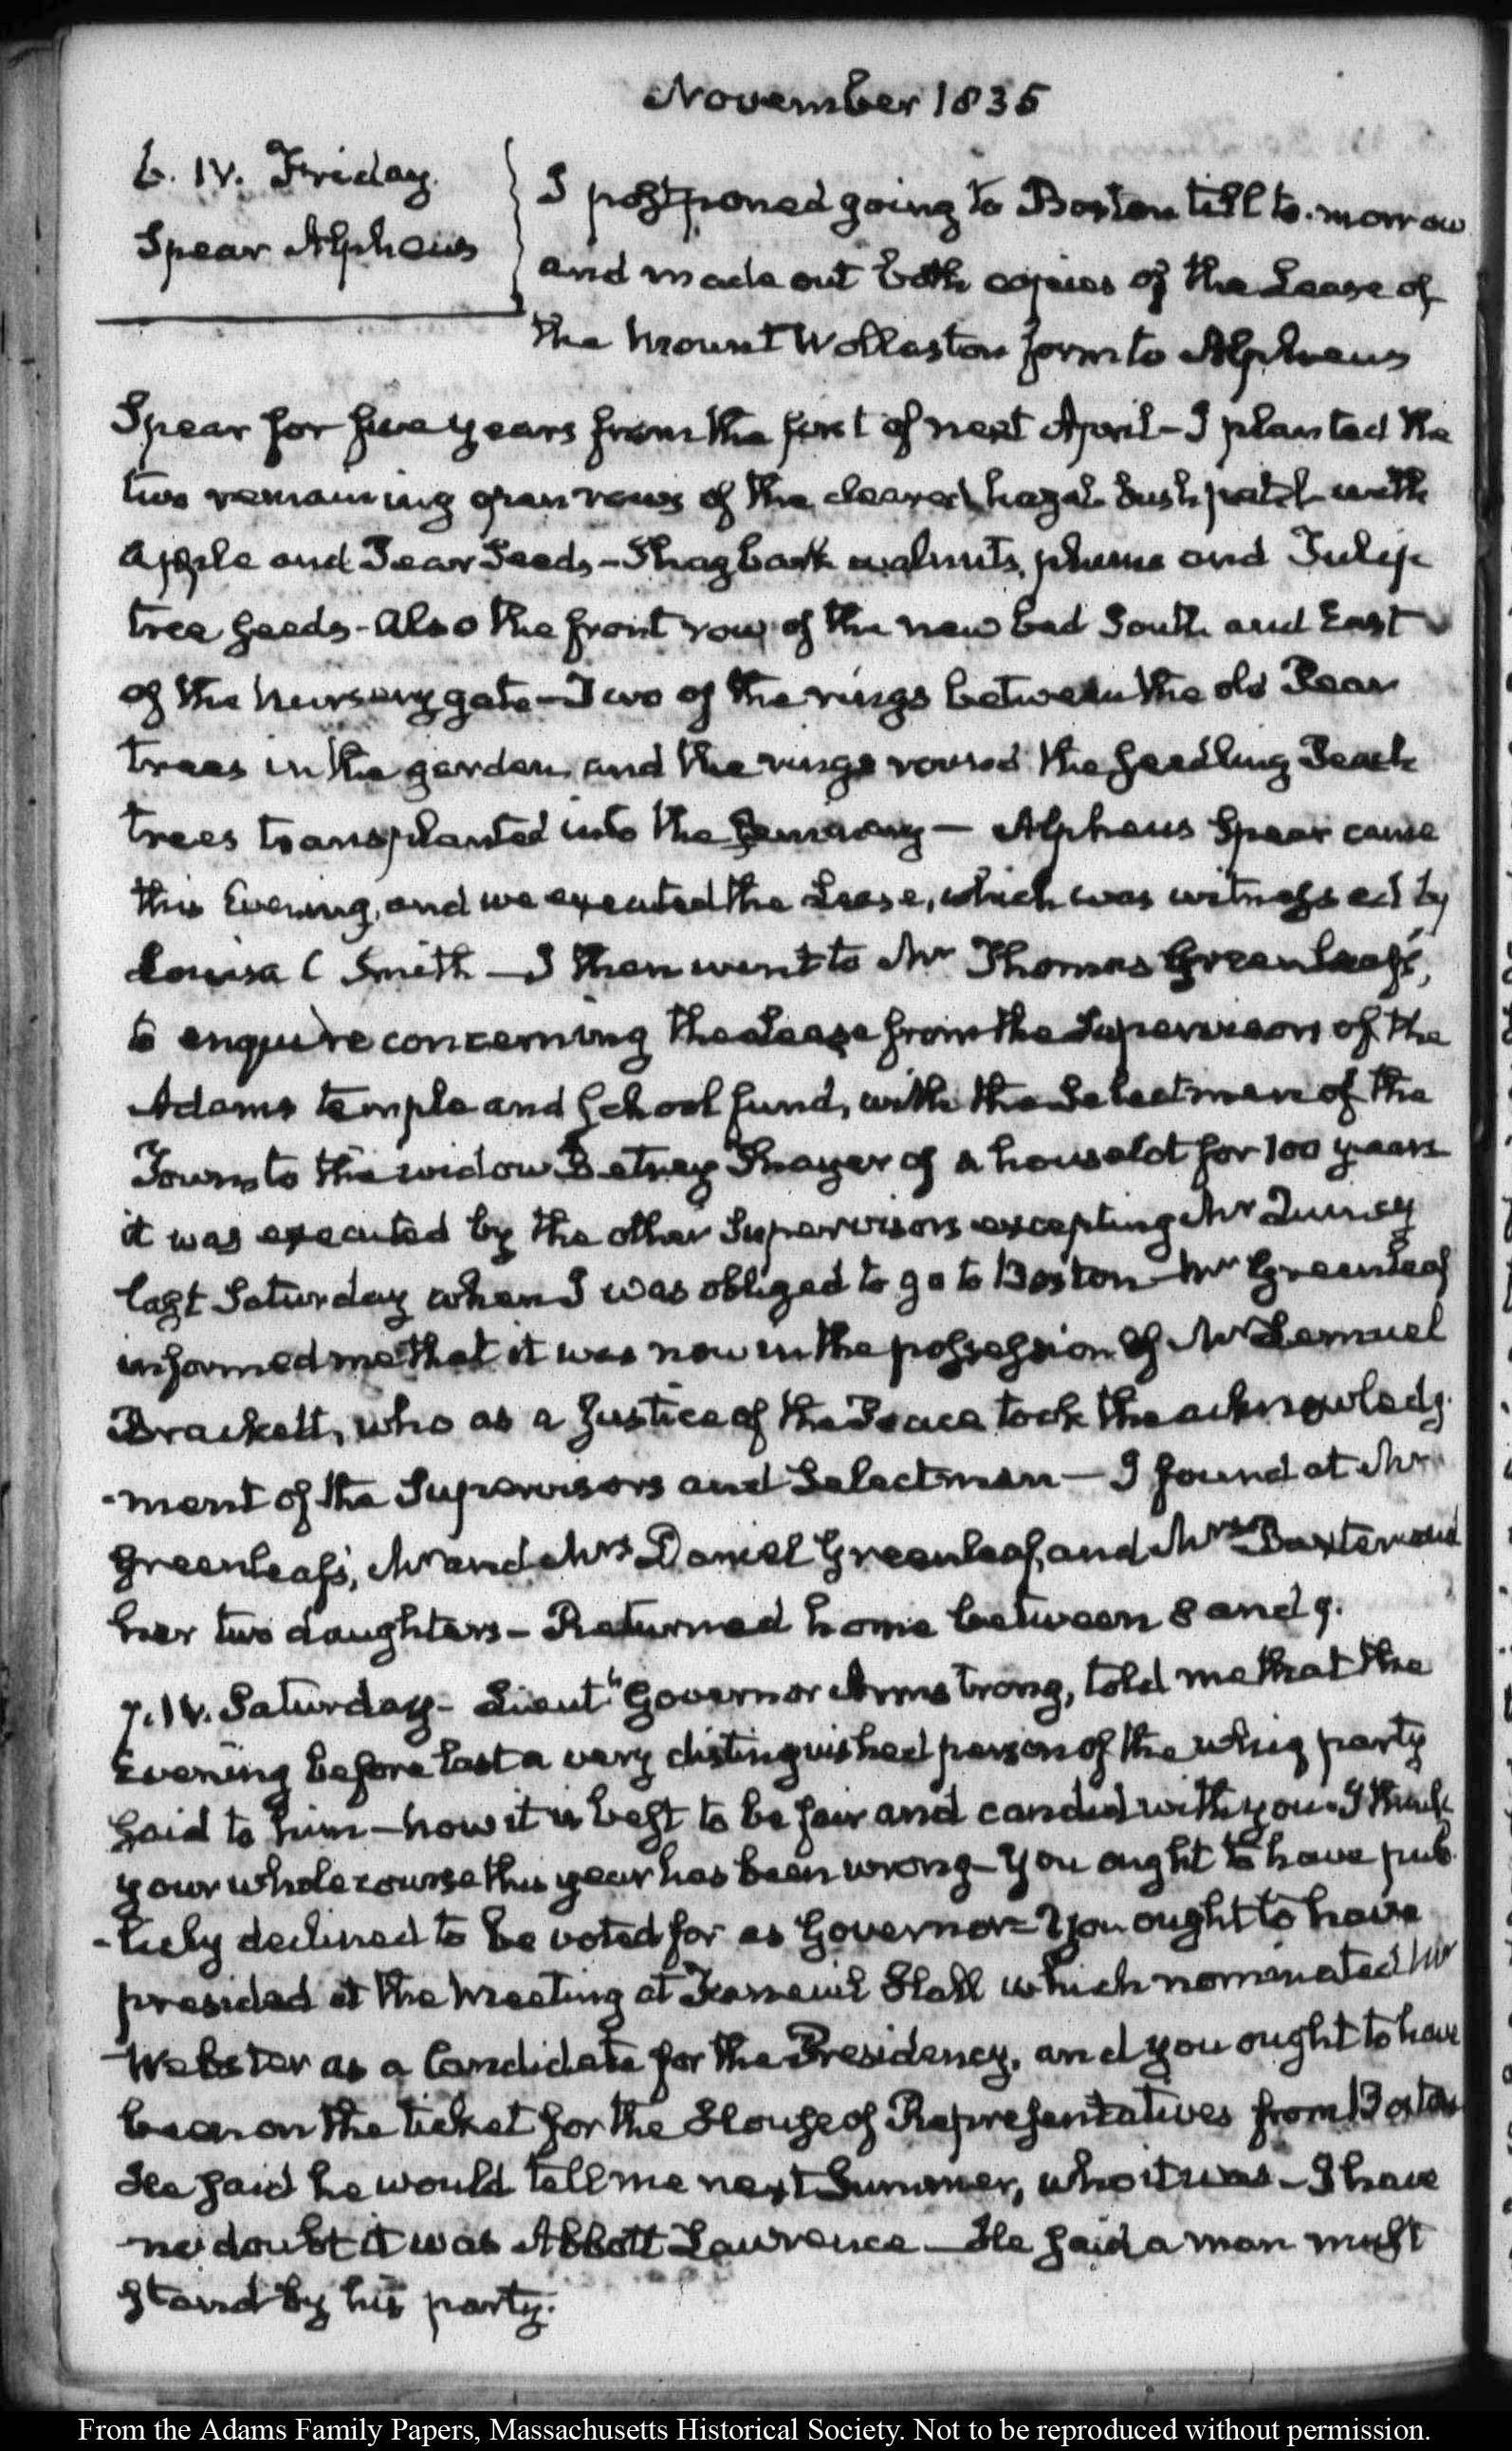 November 1835
6. IV. Friday.
Spear Alpheus
I postponed going to Boston till to-morrow
and made out both copies of the Lease of
the Mount Wollaston farm to Alpheus
Spear for five years from the first of next April - I planted the
two remaining open rows of the cleared hazel bush patch with
apple and Pear Seeds - Shagbark walnuts, plums and Tulip
tree seeds - also the front row of the new bed South and East
of the Nursery gate - Two of the rings between the old Pear
trees in the garden, and the rings round the seedling Peach
trees transplanted into the Seminary — Alpheus Spear came
this Evening, and we executed the Lease, which was witnessed by
Louisa C Smith — I then went to Mr Thomas Greenleaf's,
to enquire concerning the Lease from the Supervisors of the
Adams temple and School fund, with the Selectmen of the
Town to the widow Betsey Thayer of a house lot for 100 years
it was executed by the other Supervisors excepting Mr Quincy
last Saturday when I was obliged to go to Boston - Mr Greenleaf
informed me that it was now in the possession of Mr Lemuel
Brackett, who as a Justice of the Peace took the acknowledg-
-ment of the Supervisors and Selectmen — I found at Mr
Greenleaf's, Mr and Mrs Daniel Greenleaf, and Mrs Baxter and
her two daughters - Returned home between 8 and 9.
7. IV. Saturday - Lieutt Governor Armstrong, told me that the
Evening before last a very distinguished person of the whig party
said to him - now it is best to be fair and candid with you - I think
your whole course this year has been wrong - You ought to have pub-
-licly declined to be voted for as Governor - You ought to have
presided at the Meeting at Faneuil Hall which nominated Mr
Webster as a Candidate for the Presidency, and you ought to have
been on the ticket for the House of Representatives from Boston
He said he would tell me next Summer, who it was - I have
no doubt it was Abbott Lawrence — He said a man must
stand by his party.
From the Adams Family Papers, Massachusetts Historical Society. Not to be reproduced without permission.